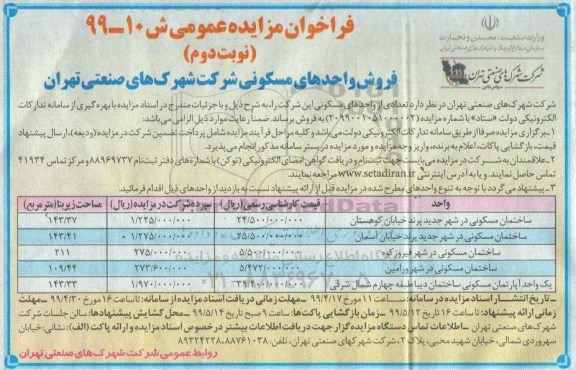 فراخوان مزایده عمومی ش ۱۰-۹۹
(نوبت دوم)
فروش واحدهای مسکونی شرکت شهرک‌های صنعتی تهران
وزارت صنعت، معدن و تجارت
شرکت شهرک‌های صنعتی تهران
شرکت شهرک‌های صنعتی تهران در نظر دارد تعدادی از واحدهای مسکونی این شرکت را، به شرح ذیل و با جزئیات مندرج در اسناد مزایده با بهره‌گیری از سامانه تدارکات
الکترونیکی دولت «ستاد» با شماره مزایده (۲۰۹۹۰۰۱۰۵۱۰۰۰۰۰۲) به فروش برساند. ضمنا رعایت موارد ذیل الزامی می‌باشد:
۱-برگزاری مزایده صرفا از طریق سامانه تدارکات الکترونیکی دولت می‌باشد و کلیه مراحل فرآیند مزایده شامل پرداخت تضمین شرکت در مزایده (ودیعه)، ارسال پیشنهاد
قیمت، بازگشایی پاکات، اعلام به برنده، واریز وجه مزایده و مورد مزایده در بستر سامانه مذکور انجام می‌پذیرد.
۲-علاقمندان به شرکت در مزایده می‌بایست جهت ثبت‌نام و دریافت گواهی امضای الکترونیکی (توکن) با شماره‌های دفتر ثبت‌نام ۸۸۹۶۹۷۳۷ و مرکز تماس ۴۱۹۳۴
تماس حاصل نمایند. و یا به آدرس اینترنتی www.setadiran.ir مراجعه نمایند.
۳-پیشنهاد می‌گردد با توجه به تنوع واحدهای مطرح شده در مزایده قبل از ارائه پیشنهاد نسبت به بازدید از واحدهای ذیل اقدام فرمائید.
واحد قیمت کارشناسی رسمی (ریال) سپرده شرکت در مزایده (ریال) مساحت زیربنا (متر مربع)
ساختمان مسکونی در شهر جدید پرند خیابان کوهستان ۲۴/۵۰۰/۰۰۰/۰۰۰ ۱/۲۲۵/۰۰۰/۰۰۰ ۱۴۳/۳۷
ساختمان مسکونی در شهر جدید پرند خیابان آسمان ۲۵/۵۰۰/۰۰۰/۰۰۰ ۱/۲۷۵/۰۰۰/۰۰۰ ۱۴۳/۴۱
ساختمان مسکونی در شهر فیروزکوه ۵/۵۰۰/۰۰۰/۰۰۰ ۲۷۵/۰۰۰/۰۰۰ ۲۱۱
ساختمان مسکونی در شهر ورامین ۵/۴۷۲/۰۰۰/۰۰۰ ۲۷۳/۶۰۰/۰۰۰ ۱۰۹/۴۴
یک واحد آپارتمان مسکونی در دیبا طبقه چهارم شمال شرقی ۳۹/۴۰۰/۰۰۰/۰۰۰ ۱/۹۷۰/۰۰۰/۰۰۰ ۱۴۳/۳۳
-تاریخ انتشار اسناد مزایده در سامانه: ساعت ۱۱ مورخ ۹۹/۴/۱۷ -مهلت زمانی دریافت اسناد مزایده از سامانه: تا ساعت ۱۶ مورخ ۹۹/۴/۳۰ -مهلت
زمانی ارائه پیشنهاد: تا ساعت ۱۶ تاریخ ۹۹/۵/۱۳ -زمان بازگشایی پاکت‌ها: ساعت ۹ صبح تاریخ ۹۹/۵/۱۴ -محل گشایش پیشنهادها: سالن جلسات شرکت
شهرک‌های صنعتی تهران -اطلاعات تماس دستگاه مزایده گزار جهت دریافت اطلاعات بیشتر در خصوص اسناد مزایده و ارائه پاکت (الف): نشانی: خیابان
سهروردی شمالی، خیابان شهید محبی، پلاک ۲، شرکت شهرکهای صنعتی تهران، تلفن: ۸۸۷۶۱۰۳۸-۸۹۳۲۴۲۲۸
روابط عمومی شرکت شهرک‌های صنعتی تهران